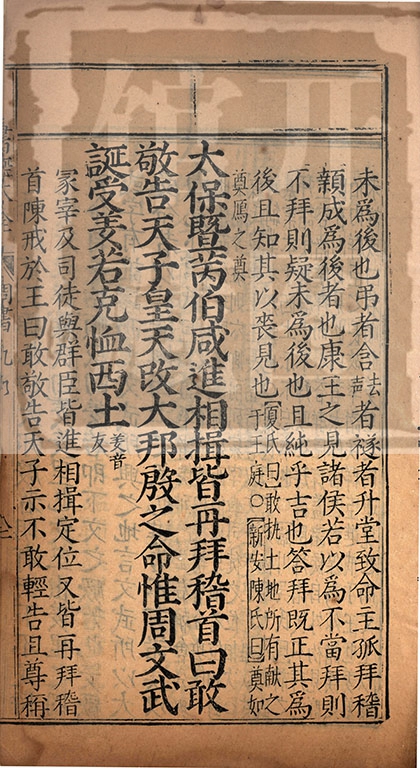 未爲後也弔者含去声者襚者升堂致命主孤拜稽
顙成爲後者也康王之見諸侯若以爲不當拜則
不拜則疑未爲後也且純乎吉也答拜既正其爲
後且知其以喪見也夏氏曰敢執土地所有獻之于王庭○新安陳氏曰奠如
奠鴈之奠
太保暨芮伯咸進相揖皆再拜稽首曰敢
敬告天子皇天改大邦殷之命惟周文武
誕受羑若克恤西土羑音友
冢宰及司徒與群臣皆進相揖定位又皆再拜稽
首陳戒於王曰敢敬告天子示不敢輕告且尊稱
書經大全 周書